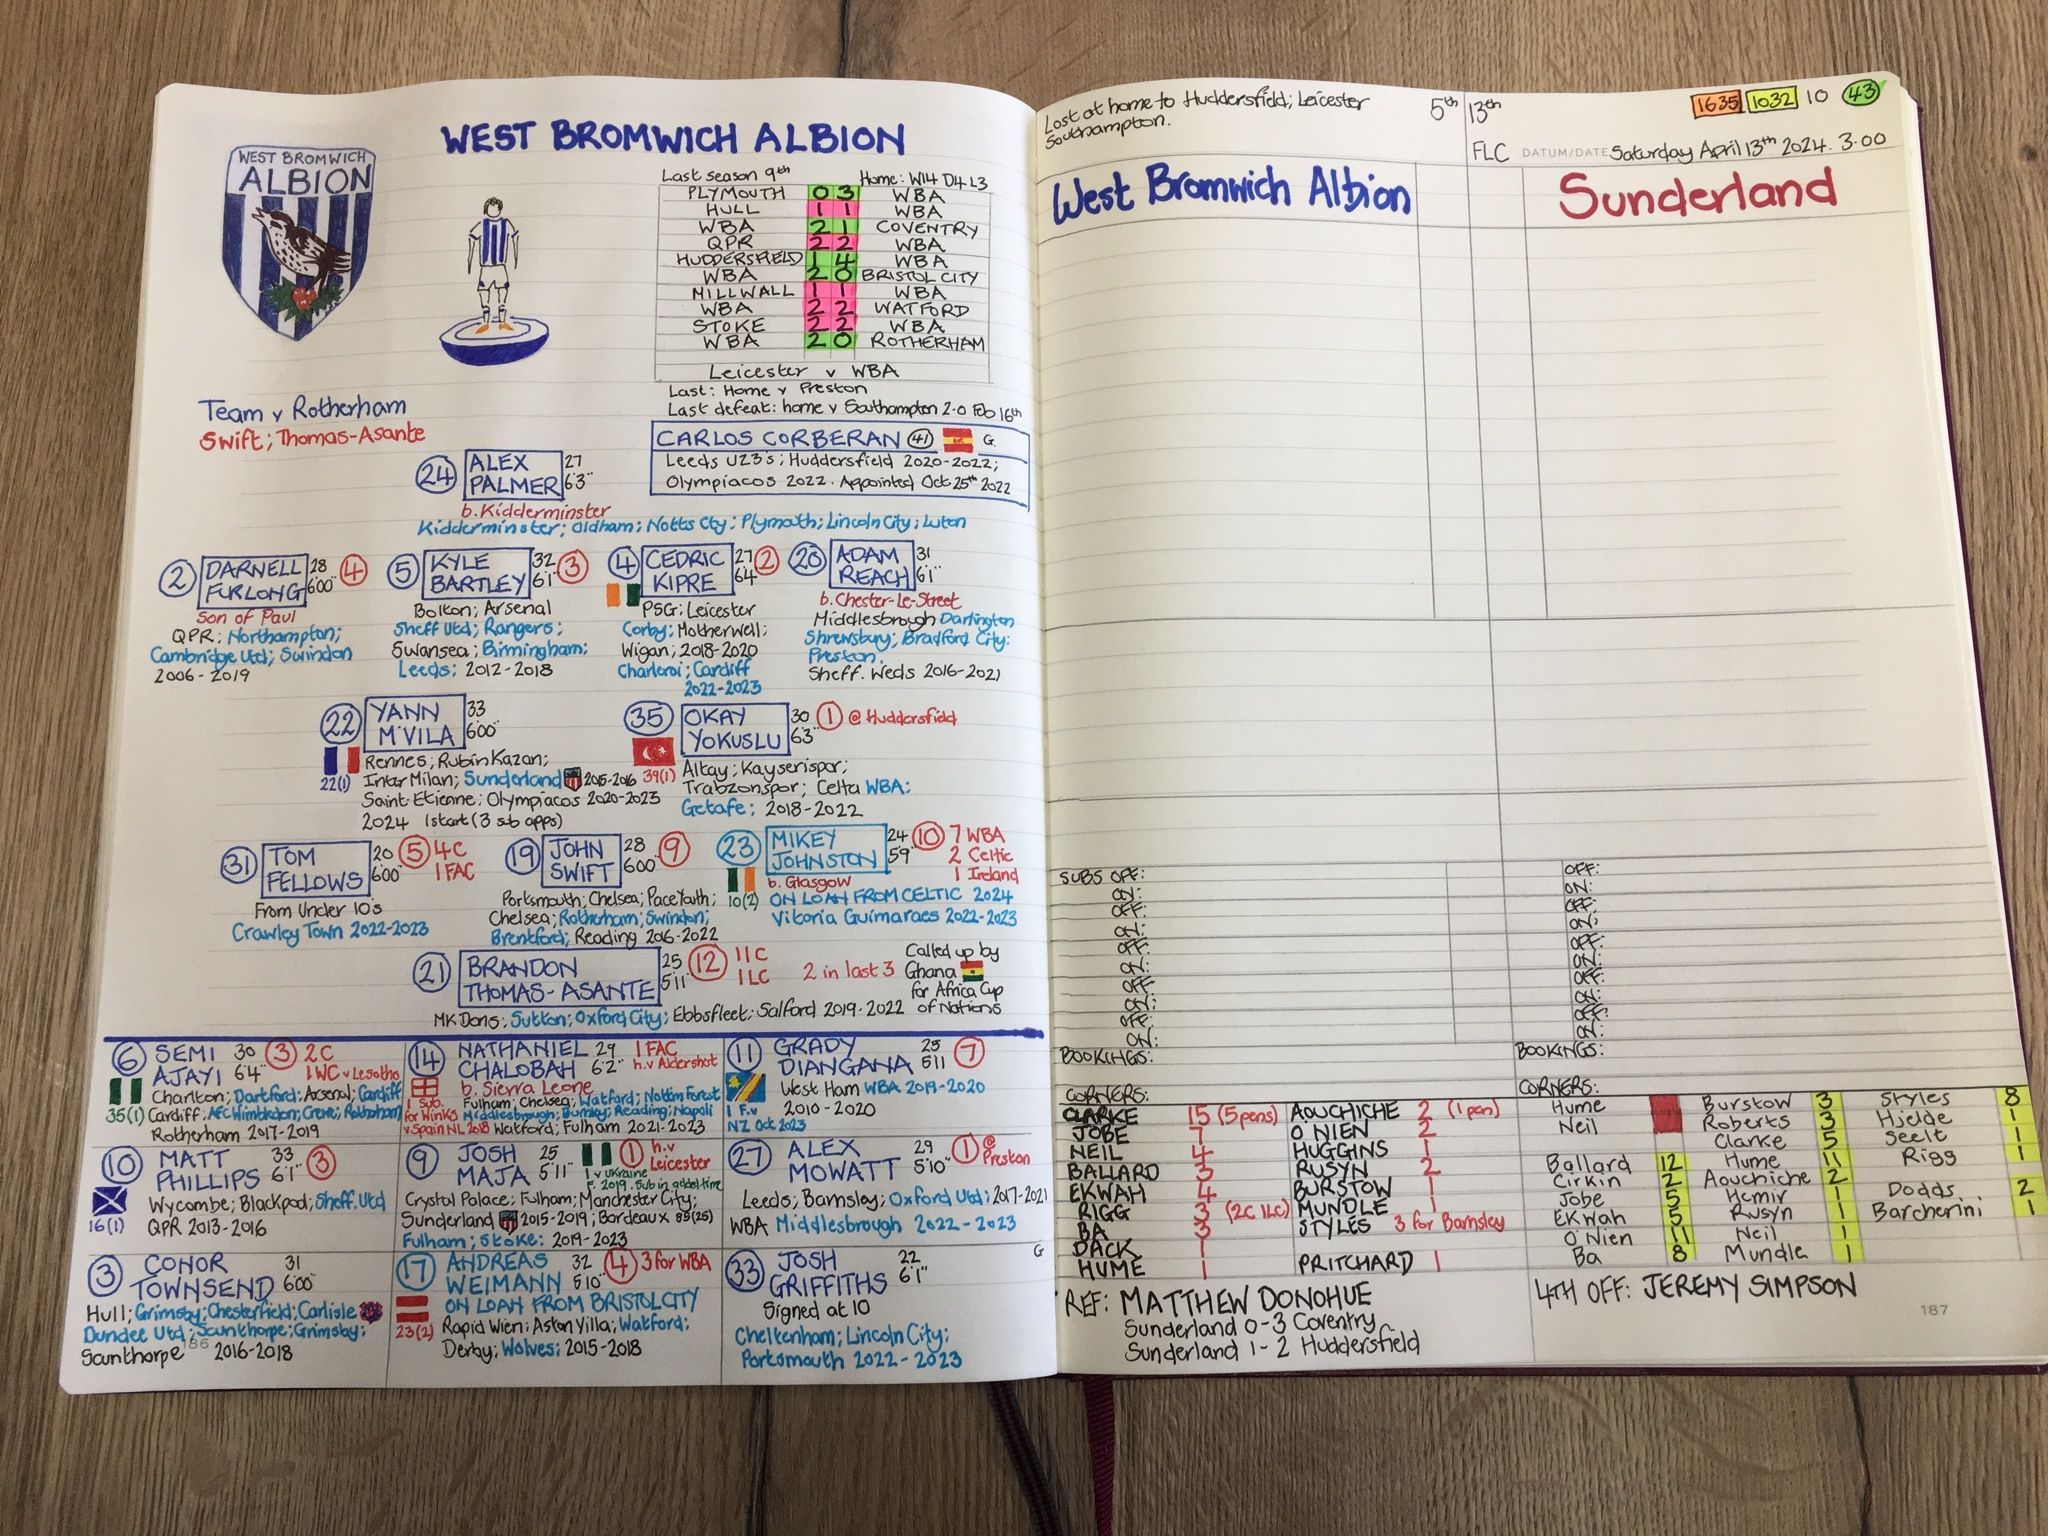 WEST BROMWICH ALBION
WEST BROMWICH
ALBION
Last season 9th Home: W14 D4 L3
PLYMOUTH 0 3 WBA
HULL 1 1 WBA
WBA 2 1 COVENTRY
QPR 2 2 WBA
HUDDERSFIELD 1 4 WBA
WBA 2 0 BRISTOL CITY
MILLWALL 1 1 WBA
WBA 2 2 WATFORD
STOKE 2 2 WBA
WBA 2 0 ROTHERHAM
Leicester v WBA
Last: Home v Preston
Last defeat: home v Southampton 2-0 Feb 16th
Team v Rotherham
Swift; Thomas-Asante
CARLOS CORBERAN 41 G.
Leeds U23's; Huddersfield 2020-2022;
Olympiacos 2022. Appointed Oct 25th 2022
24 ALEX PALMER 27 6'3"
b. Kidderminster
Kidderminster; Oldham; Notts Cty; Plymouth; Lincoln City; Luton
2 DARNELL FURLONG 28 6'00" 4
Son of Paul
QPR; Northampton;
Cambridge Utd; Swindon
2006-2019
5 KYLE BARTLEY 32 6'1" 3
Bolton; Arsenal
Sheff Utd; Rangers;
Swansea; Birmingham;
Leeds; 2012-2018
4 CEDRIC KIPRE 27 6'4" 2
PSG; Leicester
Corby; Motherwell;
Wigan; 2018-2020
Charleroi; Cardiff
2022-2023
20 ADAM REACH 31 6'1"
b. Chester-Le-Street
Middlesbrough Darlington
Shrewsbury; Bradford City;
Preston.
Sheff. Weds 2016-2021
22 YANN M'VILA 33 6'00"
22(1)
Rennes; Rubin Kazan;
Inter Milan; Sunderland 2015-2016
Saint-Etienne; Olympiacos 2020-2023
2024 1 start (3 sub apps)
35 OKAY YOKUSLU 30 6'3" 1 @ Huddersfield
39(1)
Altay; Kayserispor;
Trabzonspor; Celta WBA;
Getafe; 2018-2022
31 TOM FELLOWS 20 6'00" 5 4C
1 FAC
From Under 10s
Crawley Town 2022-2023
19 JOHN SWIFT 28 6'00" 9
Portsmouth; Chelsea; Pace Youth;
Chelsea; Rotherham; Swindon;
Brentford; Reading 2016-2022
23 MIKEY JOHNSTON 24 5'9" 10 7 WBA
2 Celtic
1 Ireland
b. Glasgow
10(2) ON LOAN FROM CELTIC 2024
Vitoria Guimaraes 2022-2023
21 BRANDON THOMAS-ASANTE 25 5'11" 12 11C
1LC
2 in last 3
Called up by
Ghana
for Africa Cup
of Nations
MK Dons; Sutton; Oxford City; Ebbsfleet; Salford 2019-2022
6 SEMI AJAYI 30 6'4" 3 2C
1WC v Lesotho
35(1)
Charlton; Dartford; Arsenal; Cardiff
Cardiff; AFC Wimbledon; Crewe; Rotherham
Rotherham 2017-2019
14 NATHANIEL CHALOBAH 29 6'2" 1 FAC
h.v Aldershot
b. Sierra Leone
1 sub.
for Winks
v Spain NL 2018
Fulham; Chelsea; Watford; Nottm Forest
Middlesbrough; Burnley; Reading; Napoli
Watford; Fulham 2021-2023
11 GRADY DIANGANA 25 5'11 7
West Ham WBA 2019-2020
2010-2020
1 F.v
NZ Oct 2023
10 MATT PHILLIPS 33 6'1" 3
16(1)
Wycombe; Blackpool; Sheff. Utd
QPR 2013-2016
9 JOSH MAJA 25 5'11" 1 h.v
Leicester
1 v Ukraine
F. 2019. Sub in added time
Crystal Palace; Fulham; Manchester City;
Sunderland 2015-2019; Bordeaux
Fulham; Stoke; 2019-2023
27 ALEX MOWATT 29 5'10" 1 @
Preston
Leeds; Barnsley; Oxford Utd; 2017-2021
WBA Middlesbrough 2022-2023
3 CONOR TOWNSEND 31 6'00"
Hull; Grimsby; Chesterfield; Carlisle
Dundee Utd; Scunthorpe; Grimsby;
Scunthorpe 2016-2018
186
17 ANDREAS WEIMANN 32 5'10" 4 3 for WBA
23(2)
ON LOAN FROM BRISTOL CITY
Rapid Wien; Aston Villa; Watford;
Derby; Wolves; 2015-2018
33 JOSH GRIFFITHS 22 6'1" G
Signed at 10
Cheltenham; Lincoln City;
Portsmouth 2022-2023
Lost at home to Huddersfield; Leicester
Southampton.
5th 13th 1635 1032 10 43
FLC DATUM/DATE Saturday April 13th 2024. 3.00
West Bromwich Albion Sunderland
SUBS OFF: OFF:
ON: ON:
OFF: OFF:
ON: ON:
OFF: OFF:
ON: ON:
OFF: OFF:
ON: ON:
OFF: OFF:
ON: ON:
BOOKINGS: BOOKINGS:
CORNERS: CORNERS:
CLARKE 15 (5 pens) AOUCHICHE 2 (1 pen)
JOBE 7 O'NIEN 2
NEIL 4 HUGGINS 1
BALLARD 3 RUSYN 2
EKWAH 4 BURSTOW 1
RIGG 3 (2C 1LC) MUNDLE 1
BA 3 STYLES 3 for Barnsley
DACK 1
HUME 1 PRITCHARD 1
Hume Burstow 3 Styles 8
Neil Roberts 3 Hjelde 1
Clarke 5 Seelt 1
Ballard 12 Hume 11 Rigg 1
Cirkin 2 Aouchiche 2
Jobe 5 Hemir 1 Dodds 2
Ekwah 5 Rusyn 1 Barcherini 1
O'Nien 11 Neil 1
Ba 8 Mundle 1
REF: MATTHEW DONOHUE
Sunderland 0-3 Coventry
Sunderland 1-2 Huddersfield
4TH OFF: JEREMY SIMPSON
187